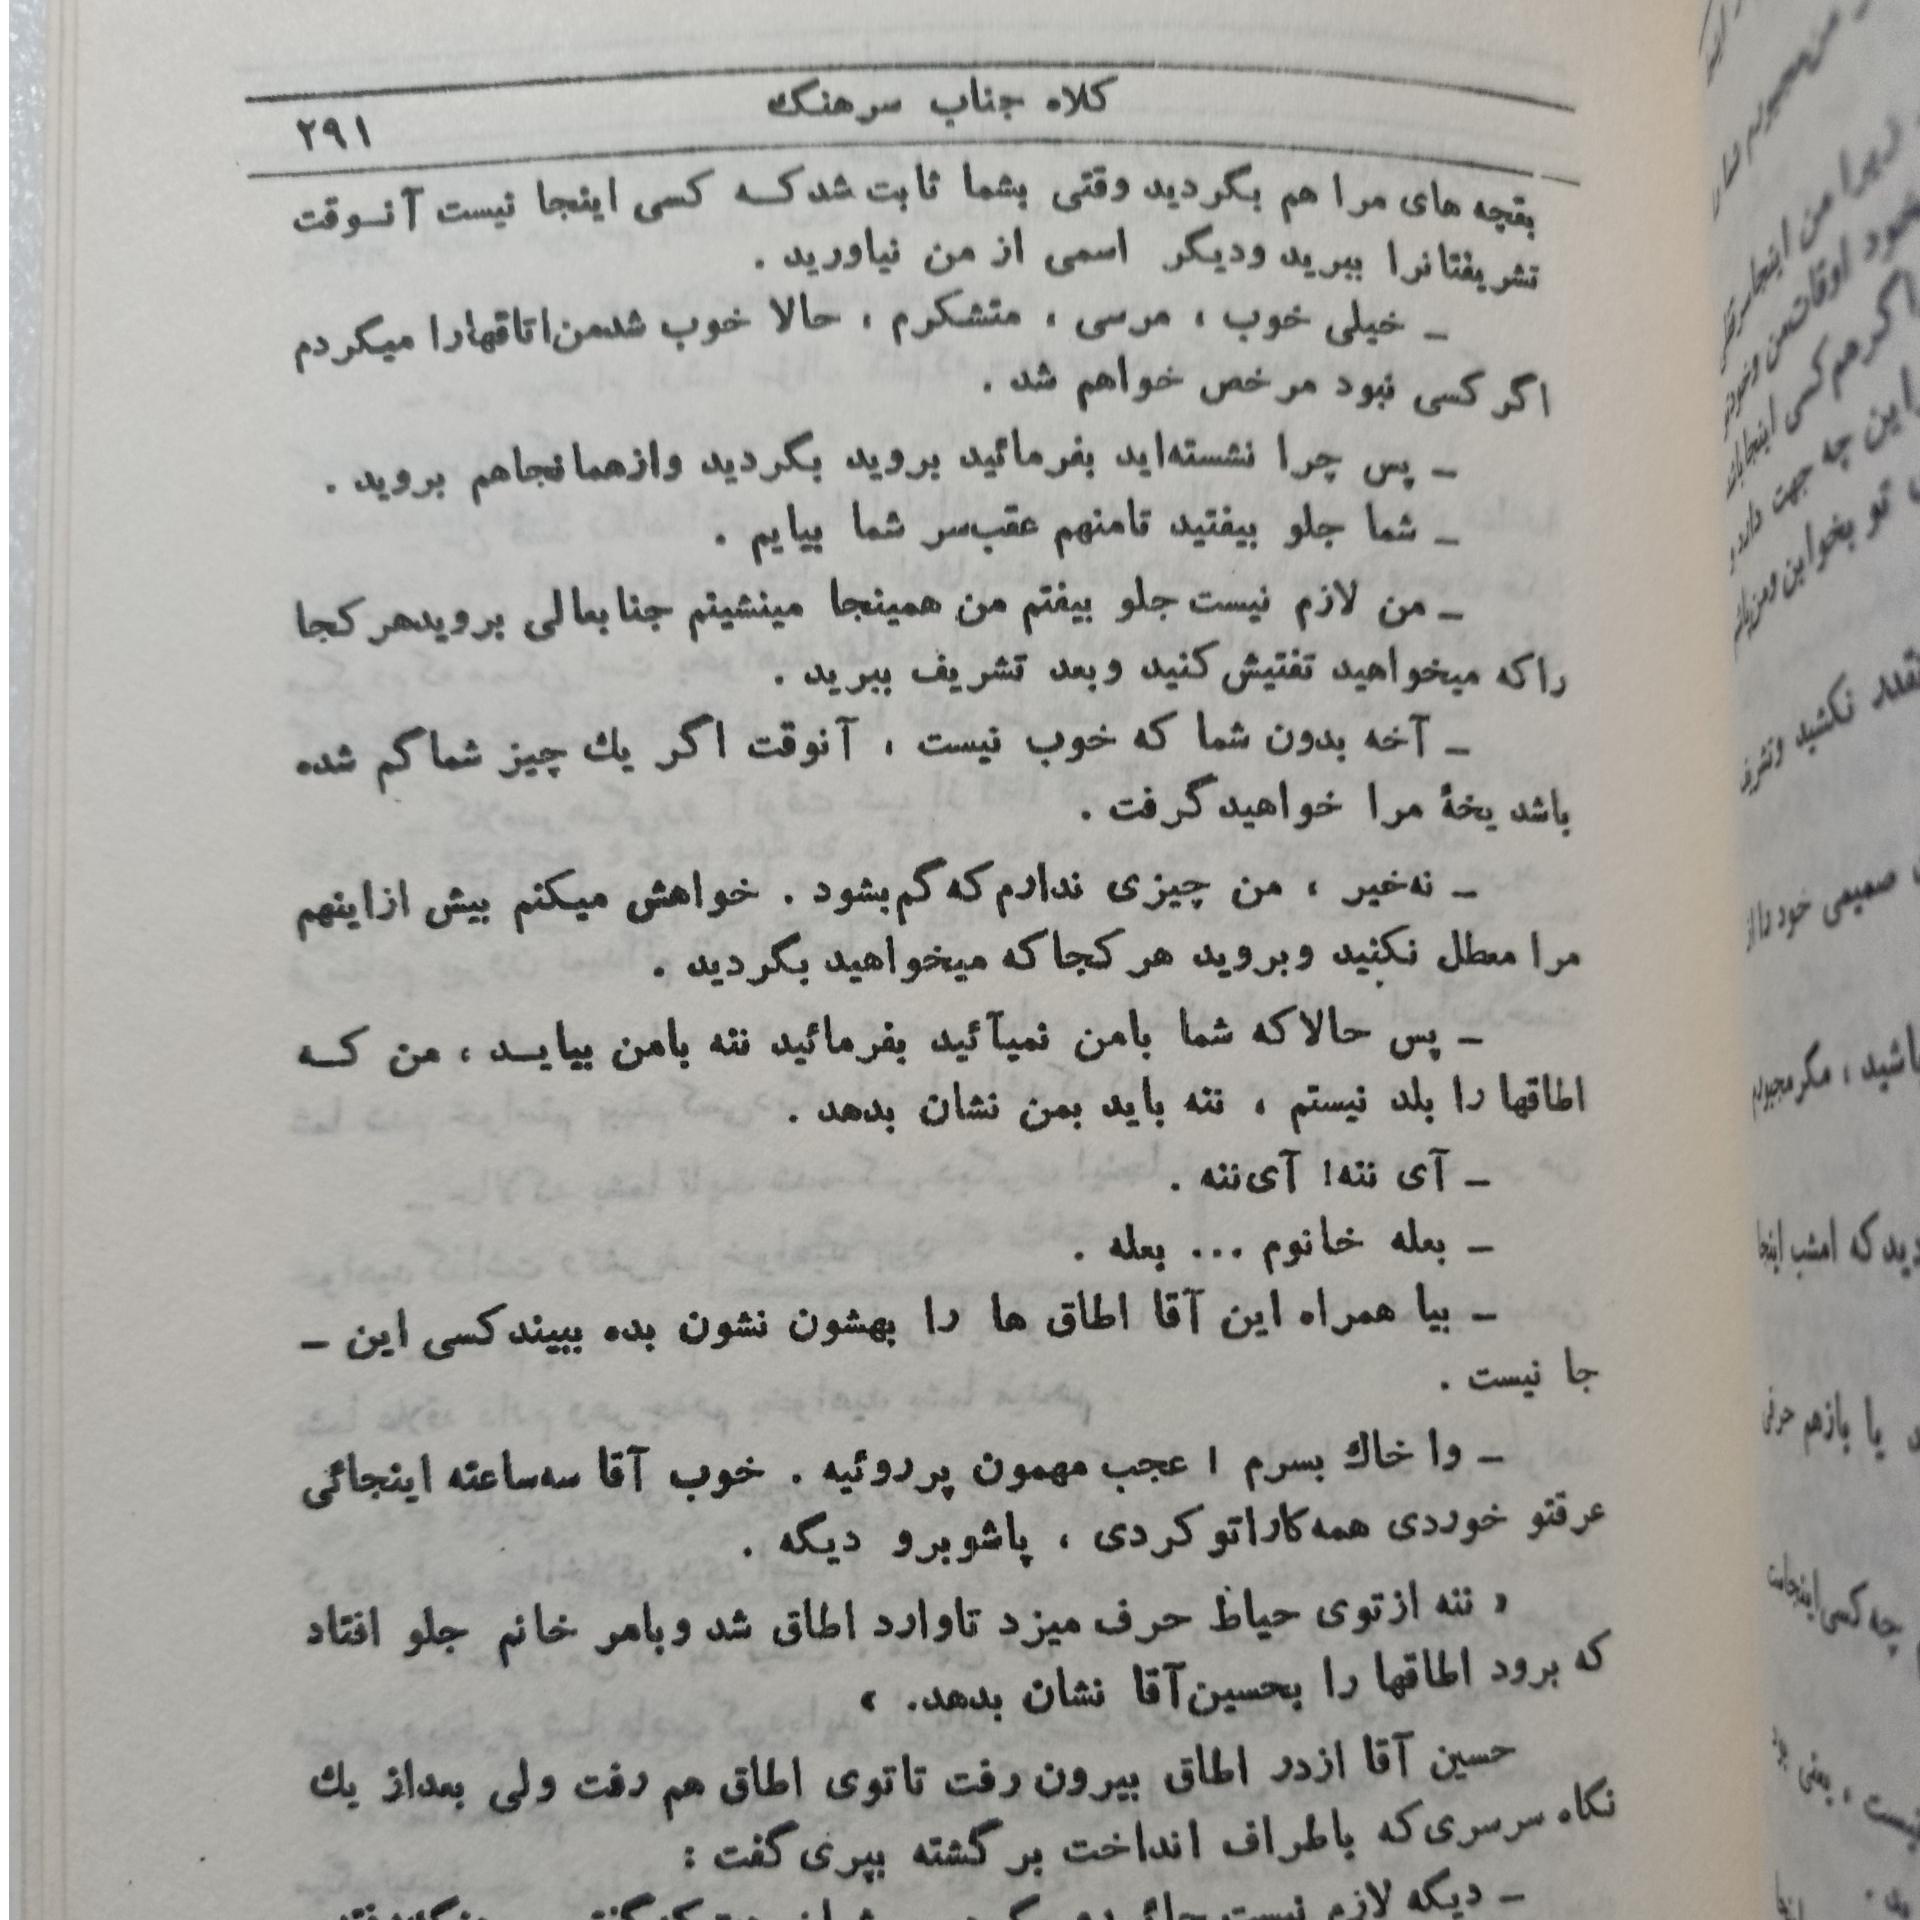 کلاه جناب سرهنگ
۲۹۱
بقچه های مرا هم بگردید وقتی بشما ثابت شد کــه کسی اینجا نیست آنــوقت
تشریفتانرا ببرید ودیگر اسمی از من نیاورید .
ــ خیلی خوب ، مرسی ، متشکرم ، حالا خوب شدمن اتاقهارا میگردم
اگر کسی نبود مرخص خواهم شد .
ــ پس چرا نشسته‌اید بفرمائید بروید بگردید وازهمانجاهم بروید .
ــ شما جلو بیفتید تامنهم عقب‌سر شما بیایم .
ــ من لازم نیست جلو بیفتم من همینجا مینشینم جنابعالی برویدهر کجا
راکه میخواهید تفتیش کنید وبعد تشریف ببرید .
ــ آخه بدون شما که خوب نیست ، آنوقت اگر یك چیز شما گم شده
باشد یخهٔ مرا خواهید گرفت .
ــ نه‌خیر ، من چیزی ندارم که گم بشود . خواهش میکنم بیش ازاینهم
مرا معطل نکنید وبروید هر کجا که میخواهید بگردید .
ــ پس حالا که شما بامن نمیآئید بفرمائید ننه بامن بیایــد ، من کــه
اطاقها را بلد نیستم ، ننه باید بمن نشان بدهد .
ــ آی ننه! آی‌ننه .
ــ بعله خانوم ... بعله .
ــ بیا همراه این آقا اطاق ها را بهشون نشون بده ببیند کسی این ــ
جا نیست .
ــ وا خاك بسرم ! عجب مهمون پرروئیه . خوب آقا سه‌ساعته اینجائی
عرقتو خوردی همه‌کاراتو کردی ، پاشو برو دیگه .
« ننه ازتوی حیاط حرف میزد تاوارد اطاق شد وبامر خانم جلو افتاد
که برود اطاقها را بحسین‌آقا نشان بدهد. »
حسین آقا ازدر اطاق بیرون رفت تاتوی اطاق هم رفت ولی بعداز یك
نگاه سرسری که باطراف انداخت بر گشته بپری گفت :
ــ دیگه لازم نیست